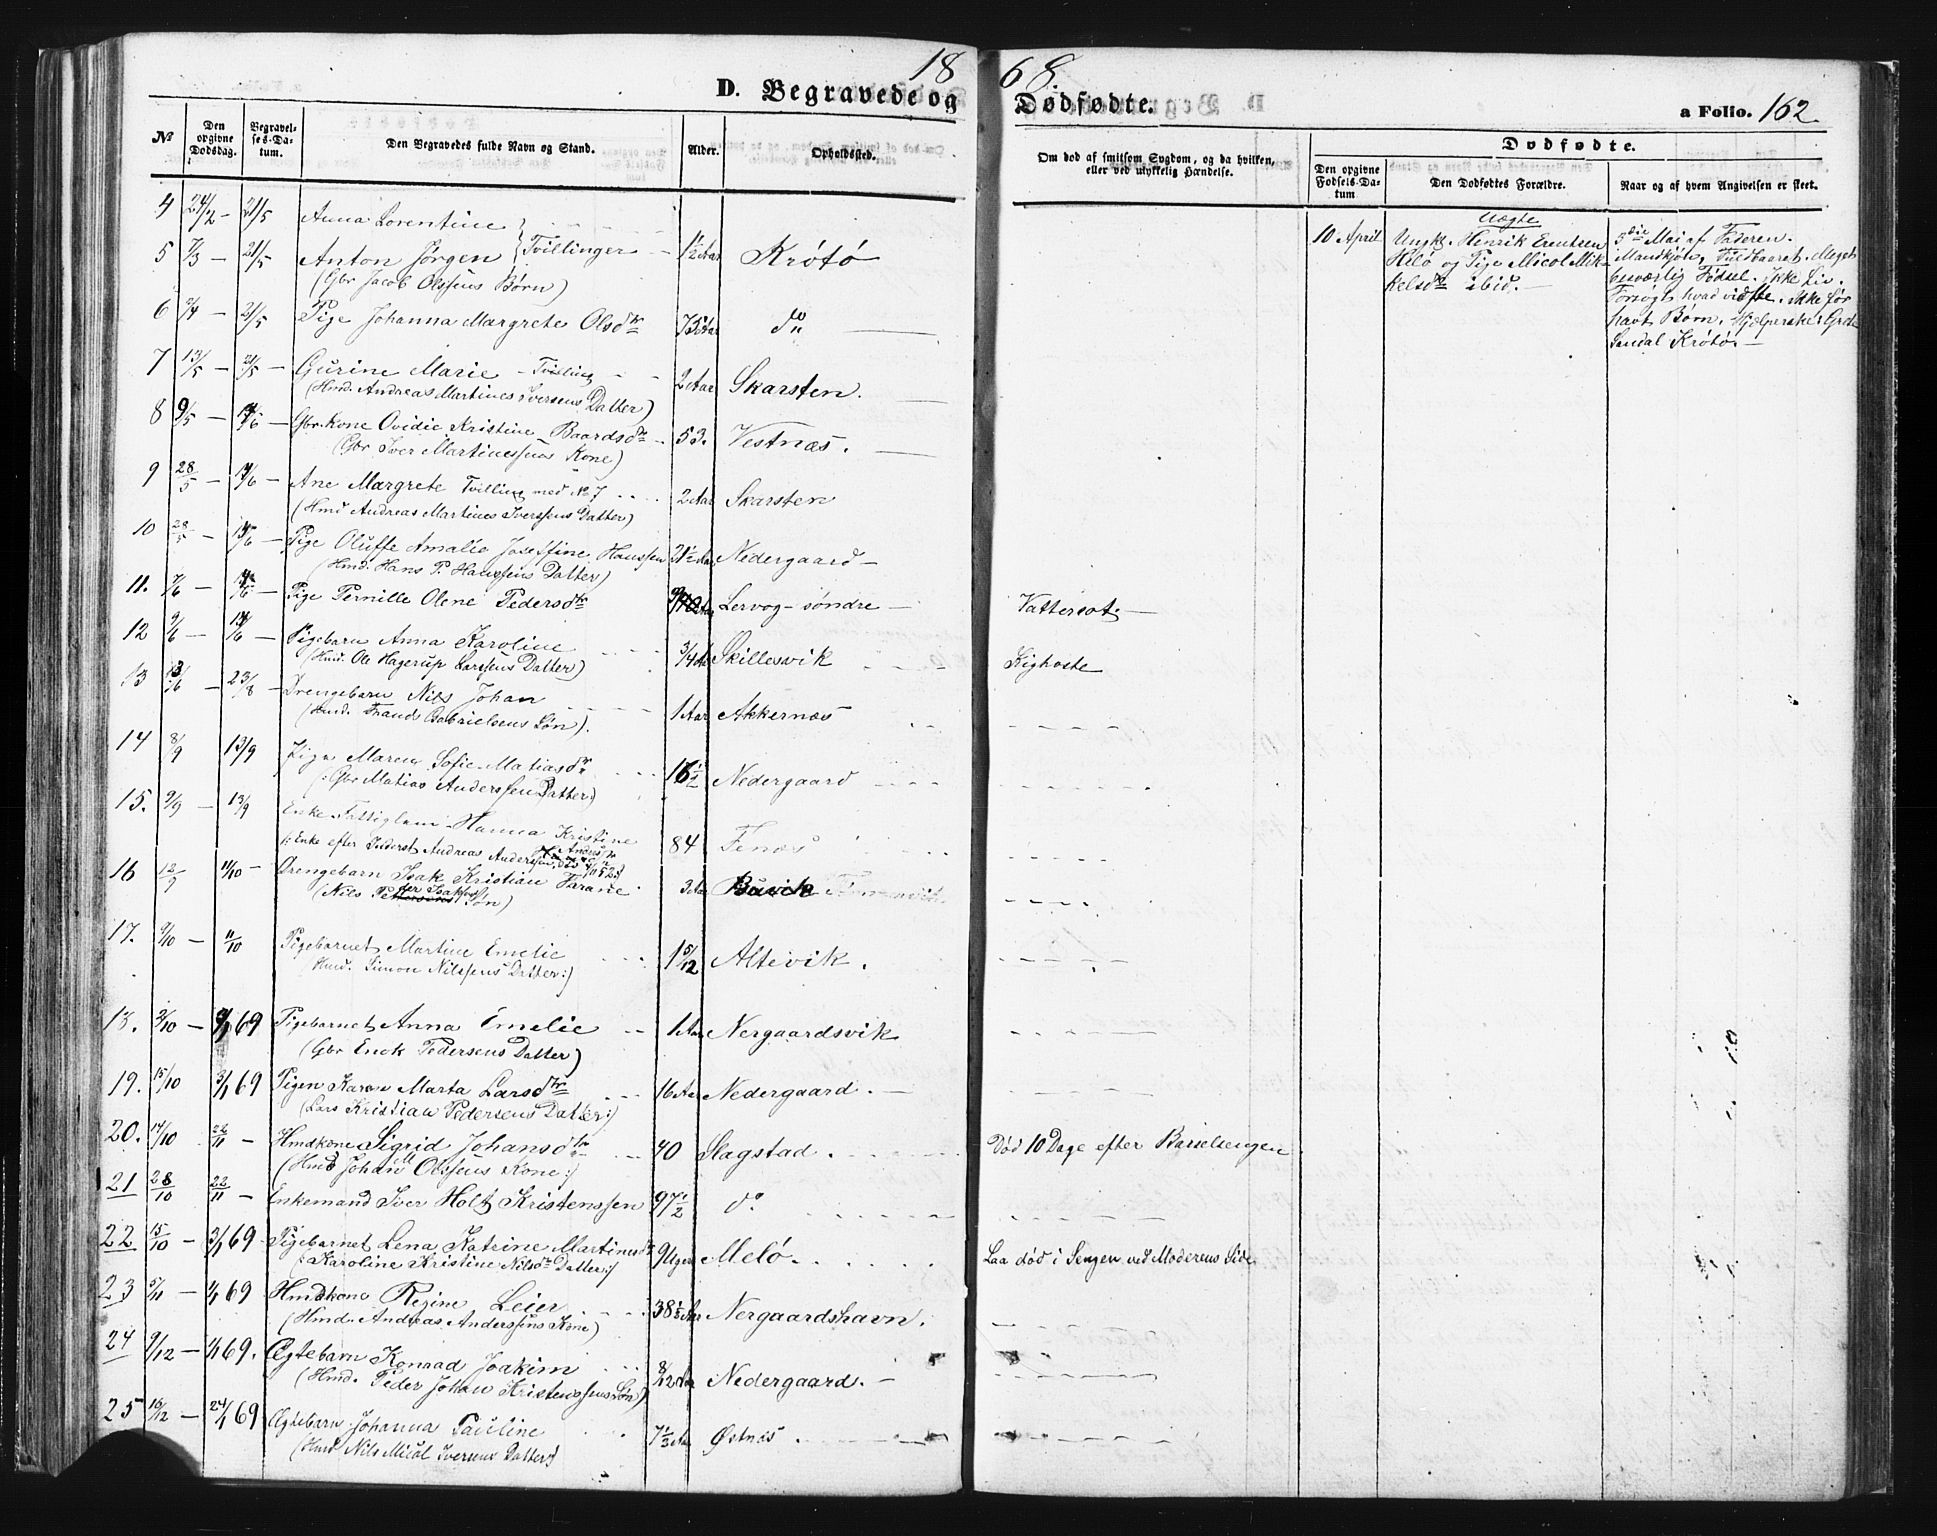 18 68.
D. Begravede og Dødfødte.
a Folio. 162.
№
Den opgivne Dødsdag.
Begravelses-Datum.
Den Begravedes fulde Navn og Stand.
Alder.
Opholdssted.
Om død af smitsom Sygdom, og da hvilken, eller ved ulykkelig Hændelse.
Dødfødte.
Den opgivne Fødsels-Datum
Den Dødfødtes Forældre.
Naar og af hvem Angivelsen er skeet.
4 24/2 – 21/5 Anna Lorentine
5 7/3 – 21/5 Anton Jørgen } Tvillinger – 1½ Aar Krøtø
(Gbr Jacob Olssens Børn)
6 2/4 – 21/5 Pige Johanna Margrete Olsdtr Aar do
7 13/5 – 21/5 Gurine Marie – Tvilling – – 2 Aar Skarsten.
(Hmd. Andreas Martines Iversens Datter)
8 9/5 – 14/6 Gbr. Kone Ovidie Kristine Baardsdtr – 53. Vestnæs.
(Gbr Iver Martinessens Kone)
9 28/5 – 14/6 – Ane Margrete Tvilling med No 7 .... 2 Aar Skarsten
(Hmd Andreas Martines Iverssens Datter)
10 28/5 – 14/6 – Pige Oluffe Amalie Joseffine Hanssen 21½ Aar Nedergaard –
(Hmd. Hans P. Hanssens Datter)
11. 7/6 – 14/6 – Pige Pernille Olene Pedersdtr Lervog – søndre – Vattersot. –
12 9/6 – 14/6 Pigebarn Anna Karoline 3/4 Aar Skillesvik Kighoste
(Hmd. Ole Hagerup Larssens Datter)
13 13/6 – 23/8 – Drengebarn Nils Johan 1 Aar Akkernæs
(Hmd. Gabrielsens Søn).
14 8/9 13/9 Pige Maren Sofie Matiasdtr 16½ Nedergaard
(: Gbr Matias Anderssens Datter:)
15. 9/9 – 13/9 Enke Fattiglem Hanna Kristine 84 Fenæs
(: Enke efter Inderst Andreas Anderssen
16 12/9 11/10 – Drengebarn Isak Kristian 3 Aar
(Nils Søn)
17. 9/10 – 11/10 Pigebarnet Martine Emelie 1 5/12 Altevik.
(Hmd. Simon Nilssens Datter:)
18. 2/10 – 69 Pigebarnet Anna Emelie – 1 Aar Nergaardsvik
(Gbr Enok Pedersens Datter)
19. 15/10 3/1 69 Pigen Karen Marta Larsdtr 16 Aar Nedergaard. –
(Lars Kristian Pedersens Datter:)
20. 17/10 22/11 – Hmdkone Sigrid Johansdtr 40 Slagstad. Død 10 Dage efter Barselsengen
(Hmd Johan Olssens Kone:)
21 28/10 22/11 – Enkemand Iver Holt Kristenssen 97½ do.
22 15/10 – 3/1 69 Pigebarnet Lena Katrine Martinesdtr 9 Uger Melø. Laa død i Sengen ved Moderens Side
(: Karoline Kristine Nilsdtr Datter:)
23 5/11 – 1/1 69 Hmdkone Regine Leier 38½ Aar Nergaardshavn.
(Hmd. Andreas Anderssens Kone)
24 9/12 – 1/1 69. Ægtebarn Konrad Joakim 8/12 Aar Nedergaard. –
(Hmd. Peder Johan Kristenssens Søn)
25 16/12 – 24/1 69 Ægtebarn Johanna Pauline 7½ Aar Østnæs.
(Hmd Nils Mical Iversens Datter)
10 April
Uægte
Ungk. Henrik Erentsen
Hilø og Pige Micol Mik-
kelsdtr ibid. –
5die Mai af Faderen.
Mandkjøn, Fuldbaaret. Meget
besværlig Fødsel. Ikke Liv.
Forsøgt hvad vidste. Ikke før
havt Børn. Hjælperske:
Sandal Krøtø. –